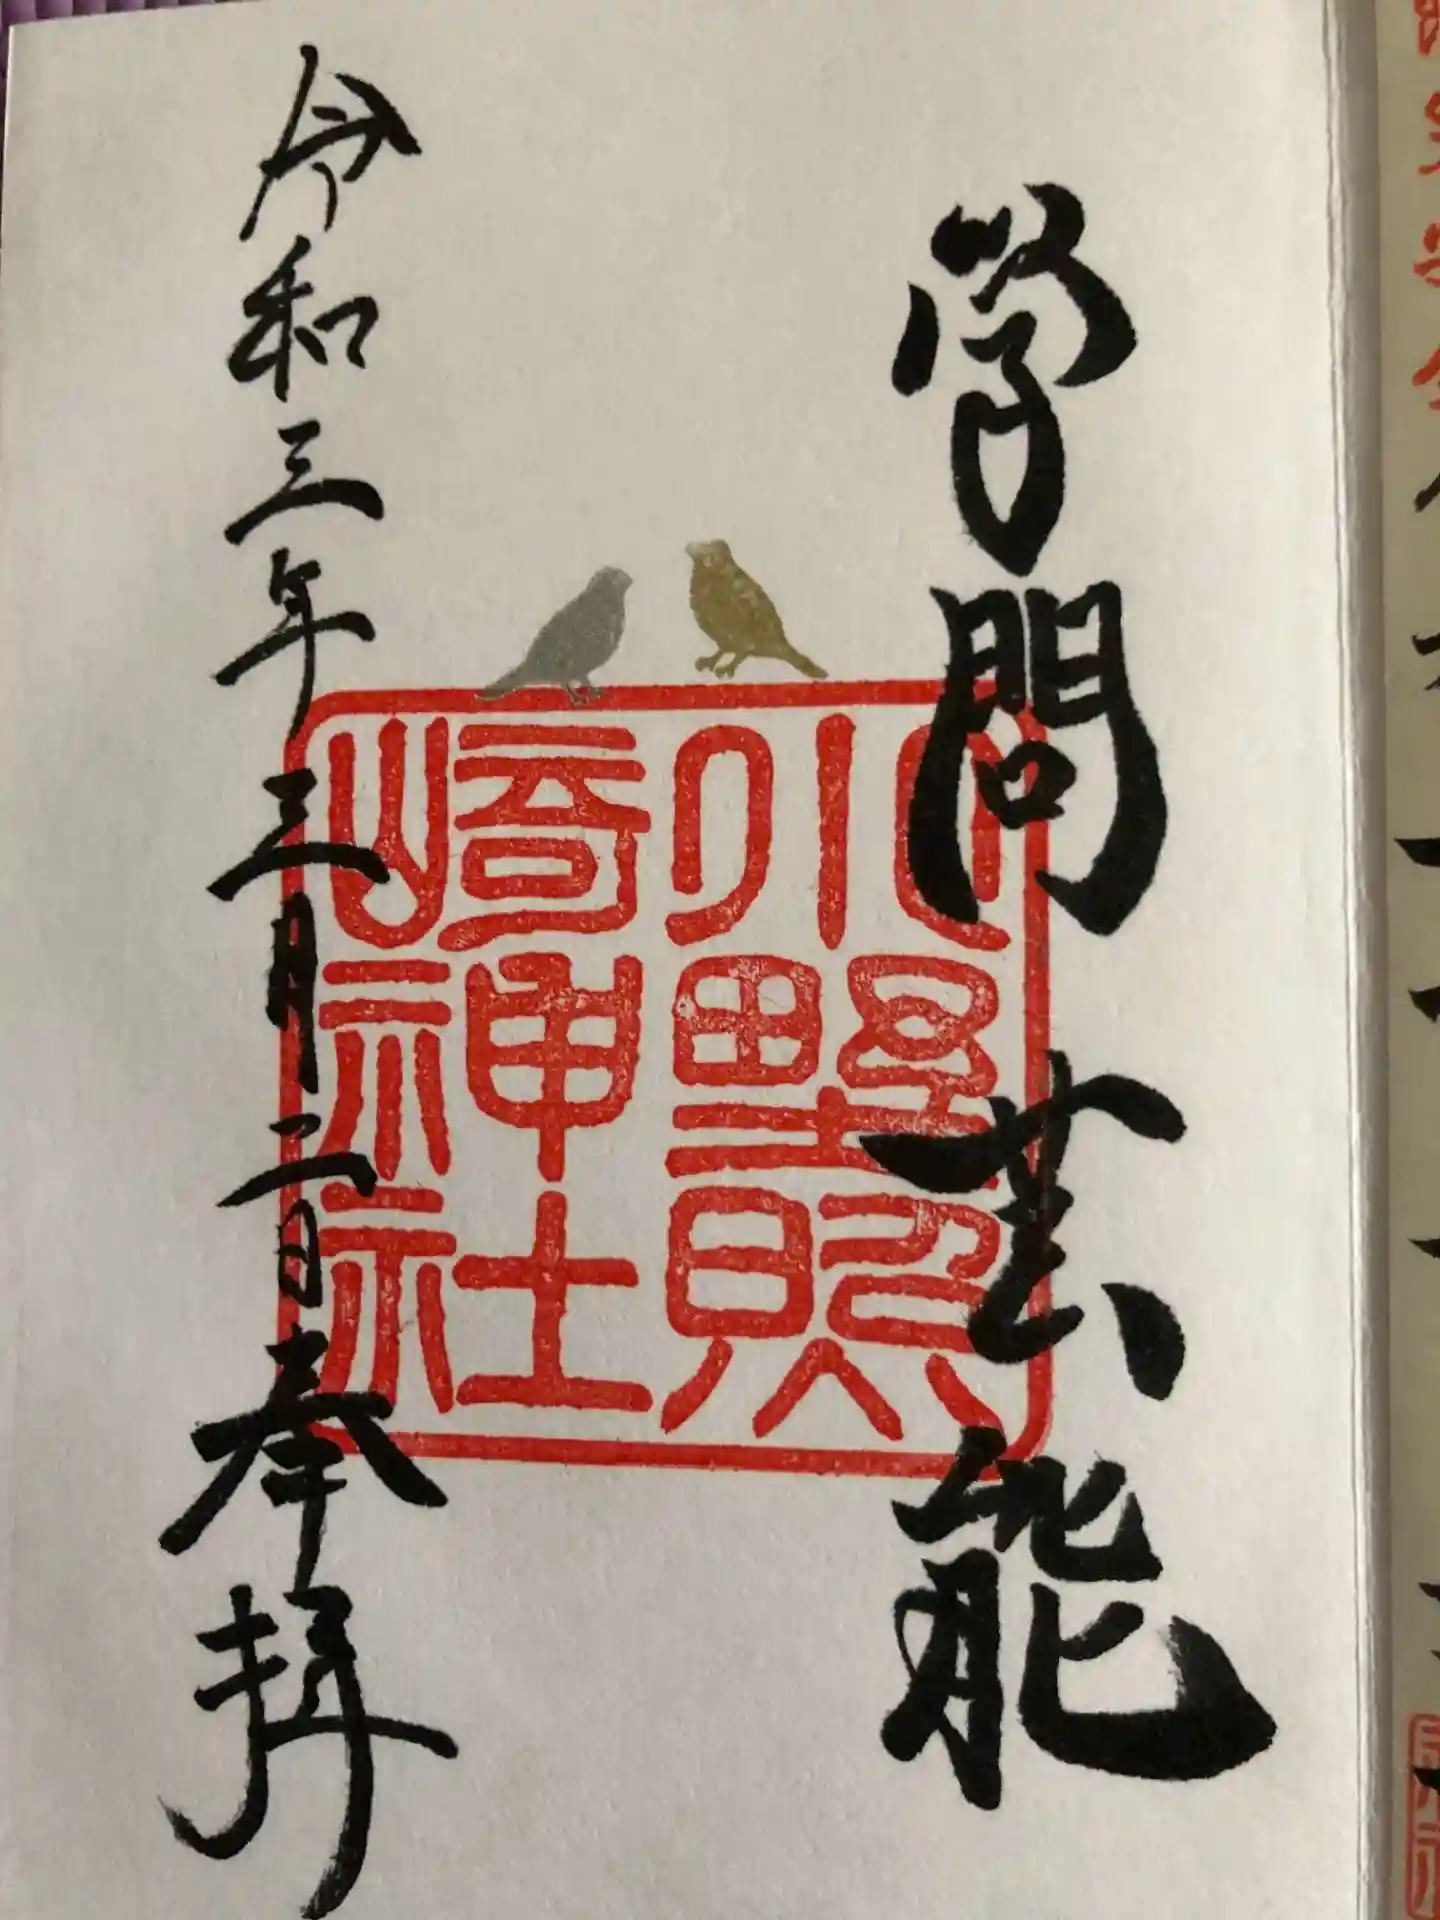 学問 芸能
小野照
崎神社
令和三年三月二日奉拝